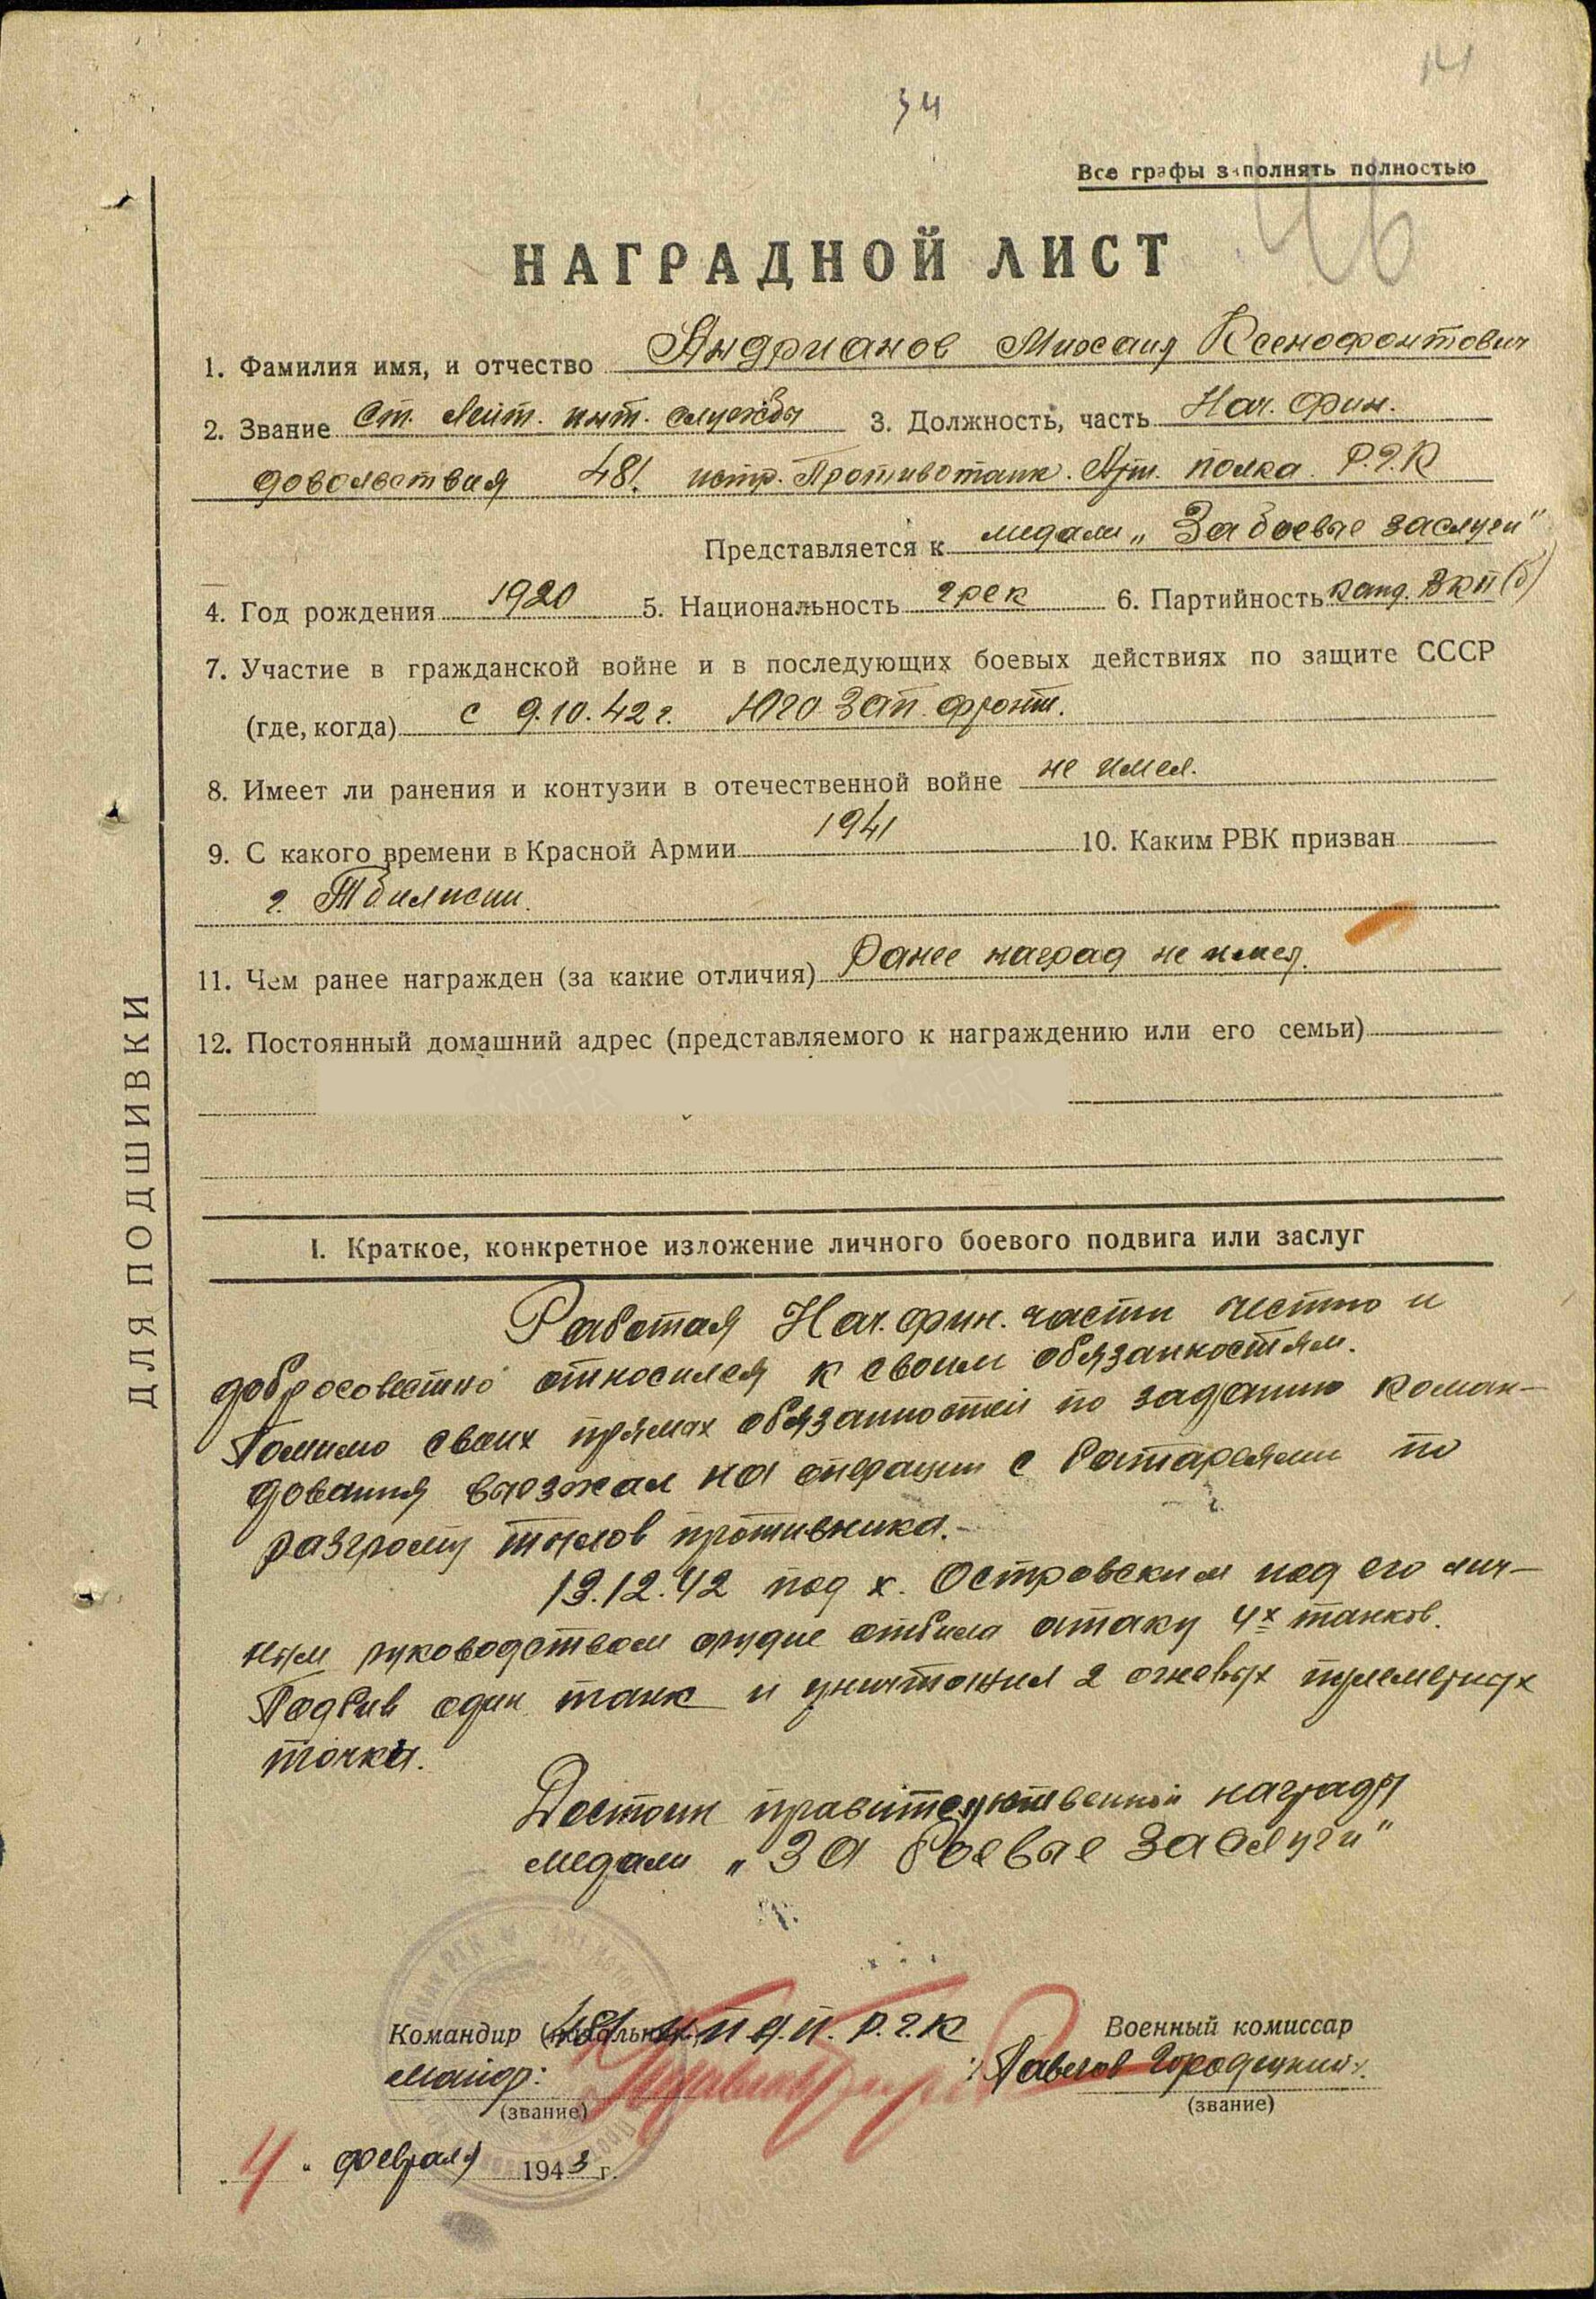 34
14
46
Все графы заполнять полностью
НАГРАДНОЙ ЛИСТ
1. Фамилия имя, и отчество Андрианов Михаил Ксенофонтович
2. Звание Ст. Лейт. инт. службы 3. Должность, часть Нач. фин.
довольствия 481. истр. Противотанк. Арт. полка Р.Г.К
Представляется к медали „За боевые заслуги"
4. Год рождения 1920 5. Национальность грек 6. Партийность канд. ВКП(б)
7. Участие в гражданской войне и в последующих боевых действиях по защите СССР
(где, когда) с 9.10.42 г. Юго Зап. фронт.
8. Имеет ли ранения и контузии в отечественной войне не имел.
9. С какого времени в Красной Армии 1941 10. Каким РВК призван
г. Тбилиси.
11. Чем ранее награжден (за какие отличия) Ранее наград не имел.
12. Постоянный домашний адрес (представляемого к награждению или его семьи)
ДЛЯ ПОДШИВКИ
I. Краткое, конкретное изложение личного боевого подвига или заслуг
Работая Нач. фин. части честно и
добросовестно относился к своим обязанностям.
Помимо своих прямых обязанностей по заданию коман-
дования выезжал на операции с батареями по
разгрому тылов противника.-
13.12.42 под х. Островским под его лич-
ным руководством орудие отбило атаку 4х танков.
Подбив один танк и уничтожил 2 огневых пулеметных
точки.
Достоин правительственной награды
медали „За боевые заслуги"
Командир (начальник) 481 И.П.А.П. Р.Г.К Военный комиссар
Майор: Павлов-Городецкий
(звание) (звание)
„4" февраля 1943 г.